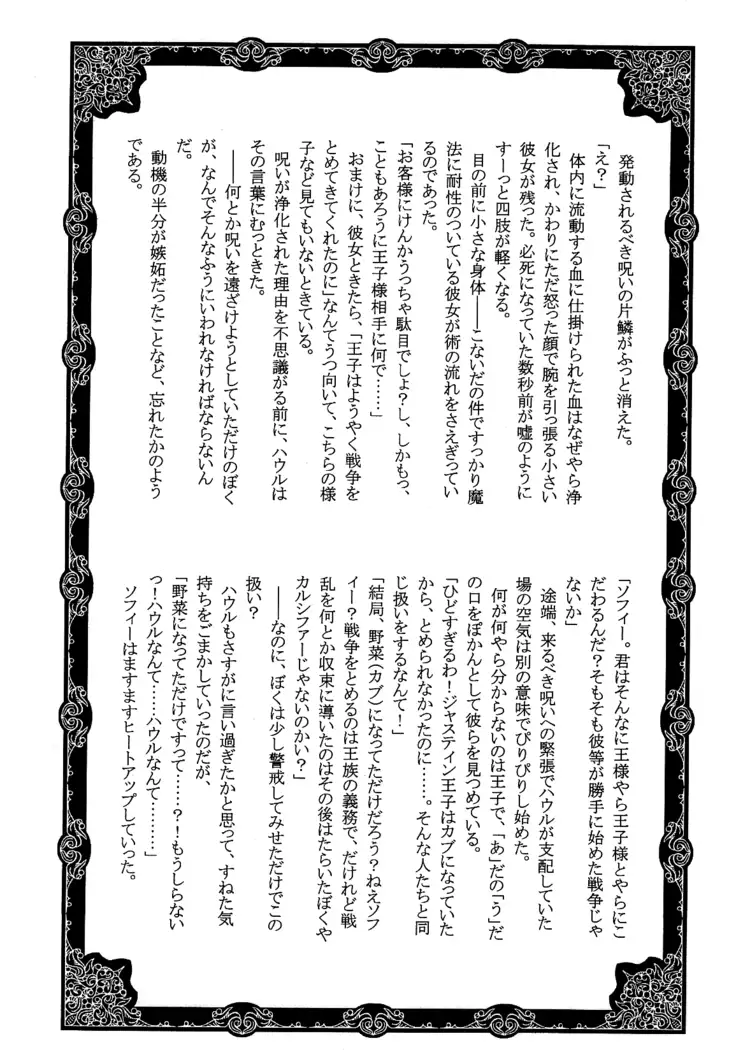 発動されるべき呪いの片鱗がふっと消えた。
「え?」
体内に流動する血に仕掛けられた血はなぜやら浄
化され、かわりにただ怒った顔で腕を引っ張る小さい
彼女が残った。必死になっていた数秒前が嘘のように
すーっと四肢が軽くなる。
目の前に小さな身体――こないだの件ですっかり魔
法に耐性のついている彼女が術の流れをさえぎってい
るのであった。
「お客様にけんかうっちゃ駄目でしょ?し、しかもっ、
こともあろうに王子様相手に何で……」
おまけに、彼女ときたら、「王子はようやく戦争を
とめてきてくれたのに」なんてうつ向いて、こちらの様
子など見てもいないときている。
呪いが浄化された理由を不思議がる前に、ハウルは
その言葉にむっときた。
――何とか呪いを遠ざけようとしていただけのぼく
が、なんでそんなふうにいわれなければならないん
だ。
動機の半分が嫉妬だったことなど、忘れたかのよう
である。
「ソフィー。君はそんなに王様やら王子様とやらにこ
だわるんだ?そもそも彼等が勝手に始めた戦争じゃ
ないか」
途端、来るべき呪いへの緊張でハウルが支配していた
場の空気は別の意味でぴりぴりし始めた。
何が何やら分からないのは王子で、「あ」だの「う」だ
の口をぽかんとして彼らを見つめている。
「ひどすぎるわ!ジャスティン王子はカブになっていた
から、とめられなかったのに……。そんな人たちと同
じ扱いをするなんて!」
「結局、野菜(カブ)になってただけだろう?ねえソフ
ィー?戦争をとめるのは王族の義務で、だけれど戦
乱を何とか収束に導いたのはその後はたらいたぼくや
カルシファーじゃないのかい?
――なのに、ぼくは少し警戒してみせただけでこの
扱い?
ハウルもさすがに言い過ぎたかと思って、すねた気
持ちをごまかしていったのだが、
「野菜になってただけですって……?!もうしらない
っ!ハウルなんて……ハウルなんて………」
ソフィーはますますヒートアップしていった。